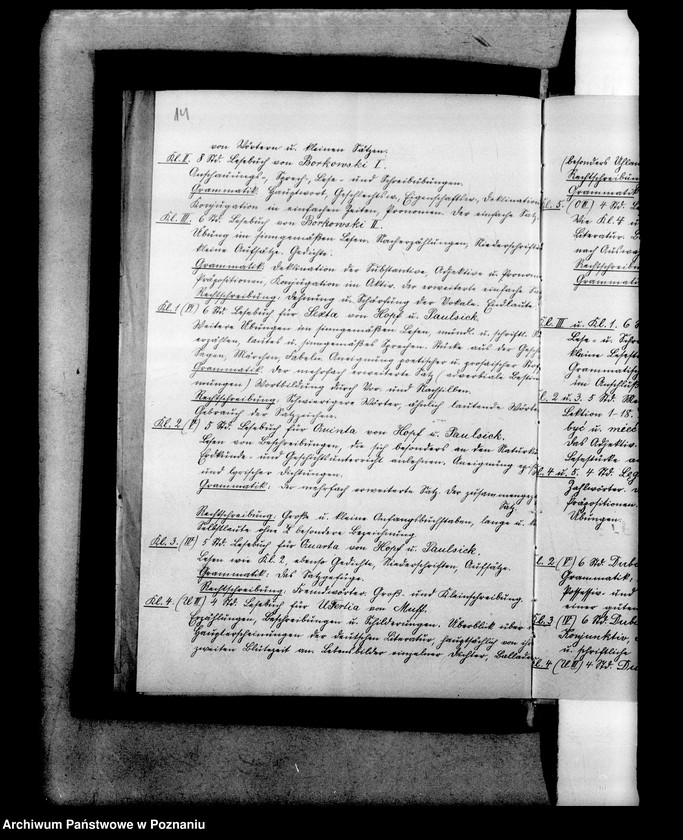 14
von Wörtern u. kleinen Sätzen.
Kl. II. 8 Std. Lesebuch von Borkowski I.
Anschauungs-, Sprech-, Lese- und Schreibübungen.
Grammatik: Hauptwort, Geschlechtsw., Eigenschaftsw., Deklination
Konjugation in einfachen Zeiten, Pronomen. Der einfache Satz.
Kl. III. 6 Std. Lesebuch von Borkowski II.
Übung im sinngemäßen Lesen. Nacherzählungen, Niederschriften
kleine Aufsätze. Gedichte.
Grammatik: Deklination der Substantive, Adjektive u. Pronom.
Präpositionen, Konjugation im Aktiv. Der erweiterte einfache
Rechtschreibung: Dehnung u. Schärfung der Vokale. Endlaute.
Kl. 1 (VI) 6 Std. Lesebuch für Sexta von Hopf u. Paulsiek
Weitere Übungen im sinngemäßen Lesen, mündl. u. schriftl.
erzählen, lautes u. sinngemäßes Sprechen. Stücke aus der
Sagen, Märchen, Fabeln. Aneignung poetischer u. prosaischer
Grammatik: Der mehrfach erweiterte Satz (adverbiale Bestim
mungen) Wortbildung durch Vor- und Nachsilben.
Rechtschreibung: Schwierigere Wörter, ähnlich lautende Wörter
Gebrauch der Satzzeichen.
Kl. 2 (V) 5 Std. Lesebuch für Quinta von Hopf u. Paulsiek.
Lesen von Beschreibungen, die sich besonders an den Naturk.
Erdkunde- und Geschichtsunterricht anlehnen. Aneignung
und lyrischer Dichtungen.
Grammatik: Der mehrfach erweiterte Satz. Der zusammenges.
Satz.
Rechtschreibung: Große u. kleine Anfangsbuchstaben, lange u.
Selbstlaute ohne besondere Bezeichnung
Kl. 3. (IV) 5 Std. Lesebuch für Quarta von Hopf u. Paulsiek.
Lesen wie Kl. 2, ebenso Gedichte, Niederschriften, Aufsätze.
Grammatik: Das Satzgefüge.
Rechtschreibung: Fremdwörter. Groß- und Kleinschreibung.
Kl. 4. (U III) 4 Std. Lesebuch für U Tertia von Muff.
Erzählungen, Beschreibungen u. Schilderungen. Überblick über
Haupterscheinungen der deutschen Literatur, hauptsächlich von
zweiten Blütezeit an. Lebensbilder einzelner Dichter, Balladen
(besonders Uhlan
Rechtschreibun
Grammatik
Kl. 5. (O III) 4 Std. L
Wie Kl. 4 u
Literatur.
nach Auswa
Rechtschreibun
Grammati
Kl. III u. Kl. 1. 6
Lese- u. Schr
kleine Lesestü
Grammatische
im Anschluß
2 u. 3. 5 Std.
Lektion 1-18.
być u. mieć
Das Adjektiv.
Lesestücke
4 u. 5. 4 Std.
Zahlwörter.
Präpositionen.
Übungen.
2 (V) 6 Std. Dub
Grammatik,
Possessiv- und
einer guten
Kl. 3 (IV) 6 Std. Dub
Konjunktiv,
u. schriftliche
Kl. 4 (U III) 4 Std. Du
Archiwum Państwowe w Poznaniu